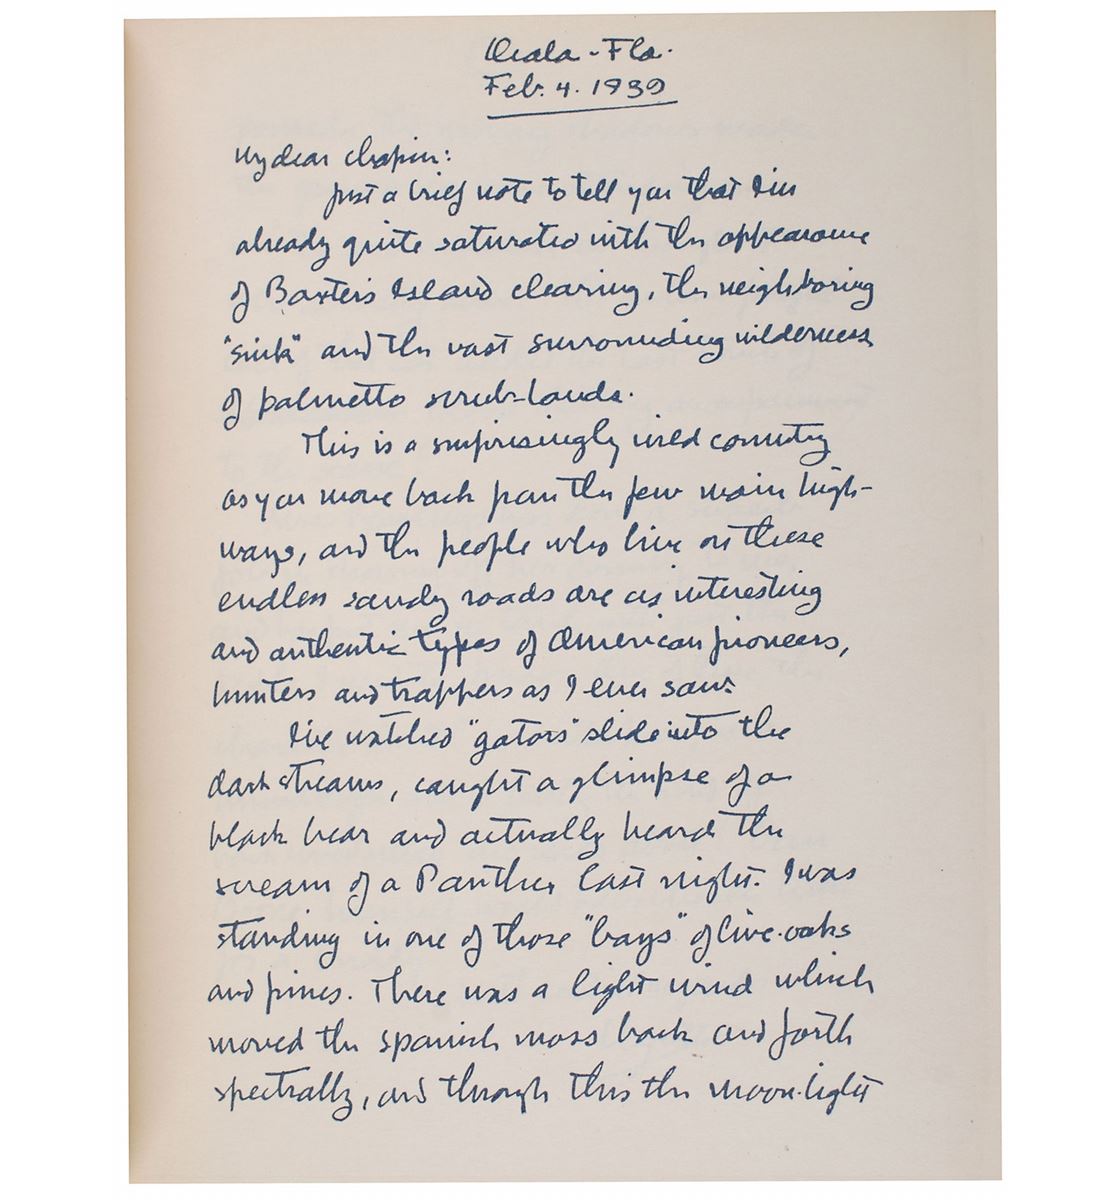 Ocala - Fla.
Feb. 4. 1939
My dear Chapin:
Just a brief note to tell you that I'm
already quite saturated with the appearance
of Baxter's Island clearing, the neighboring
"sink" and the vast surrounding wilderness
of palmetto scrub-lands.
This is a surprisingly wild country
as you move back from the few main high-
ways, and the people who live on these
endless sandy roads are as interesting
and authentic types of American pioneers,
hunters and trappers as I ever saw.
I've watched "gators" slide into the
dark streams, caught a glimpse of a
black bear and actually heard the
scream of a Panther last night. I was
standing in one of those "bays" of live-oaks
and pines. There was a light wind which
moved the spanish moss back and forth
spectrally, and through this the moon-light